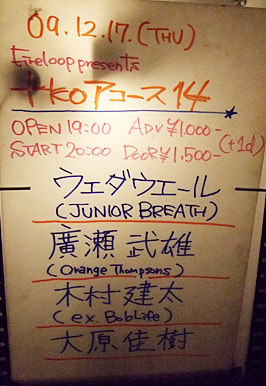 09.12.17.(THU)
Fireloop presents
十koアコース14
OPEN 19:00 ADV ¥1,000-
START 20:00 DOOR ¥1,500-
(+1d)
ウエダウエール
(JUNIOR BREATH)
廣瀬 武雄
(Orange Thompsons)
木村 建太
(ex. BobLife)
大原 佳樹